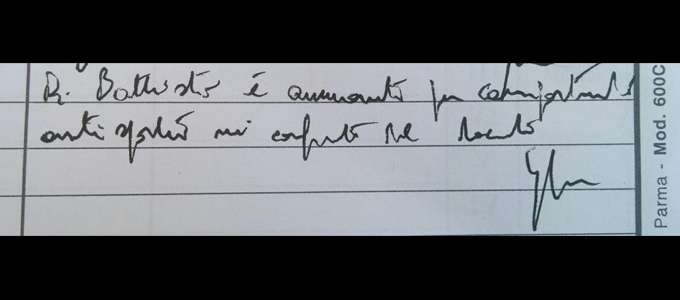 R. Battisti è ammonito per comportamento
antisportivo nei confronti del docente
Parma - Mod. 600C